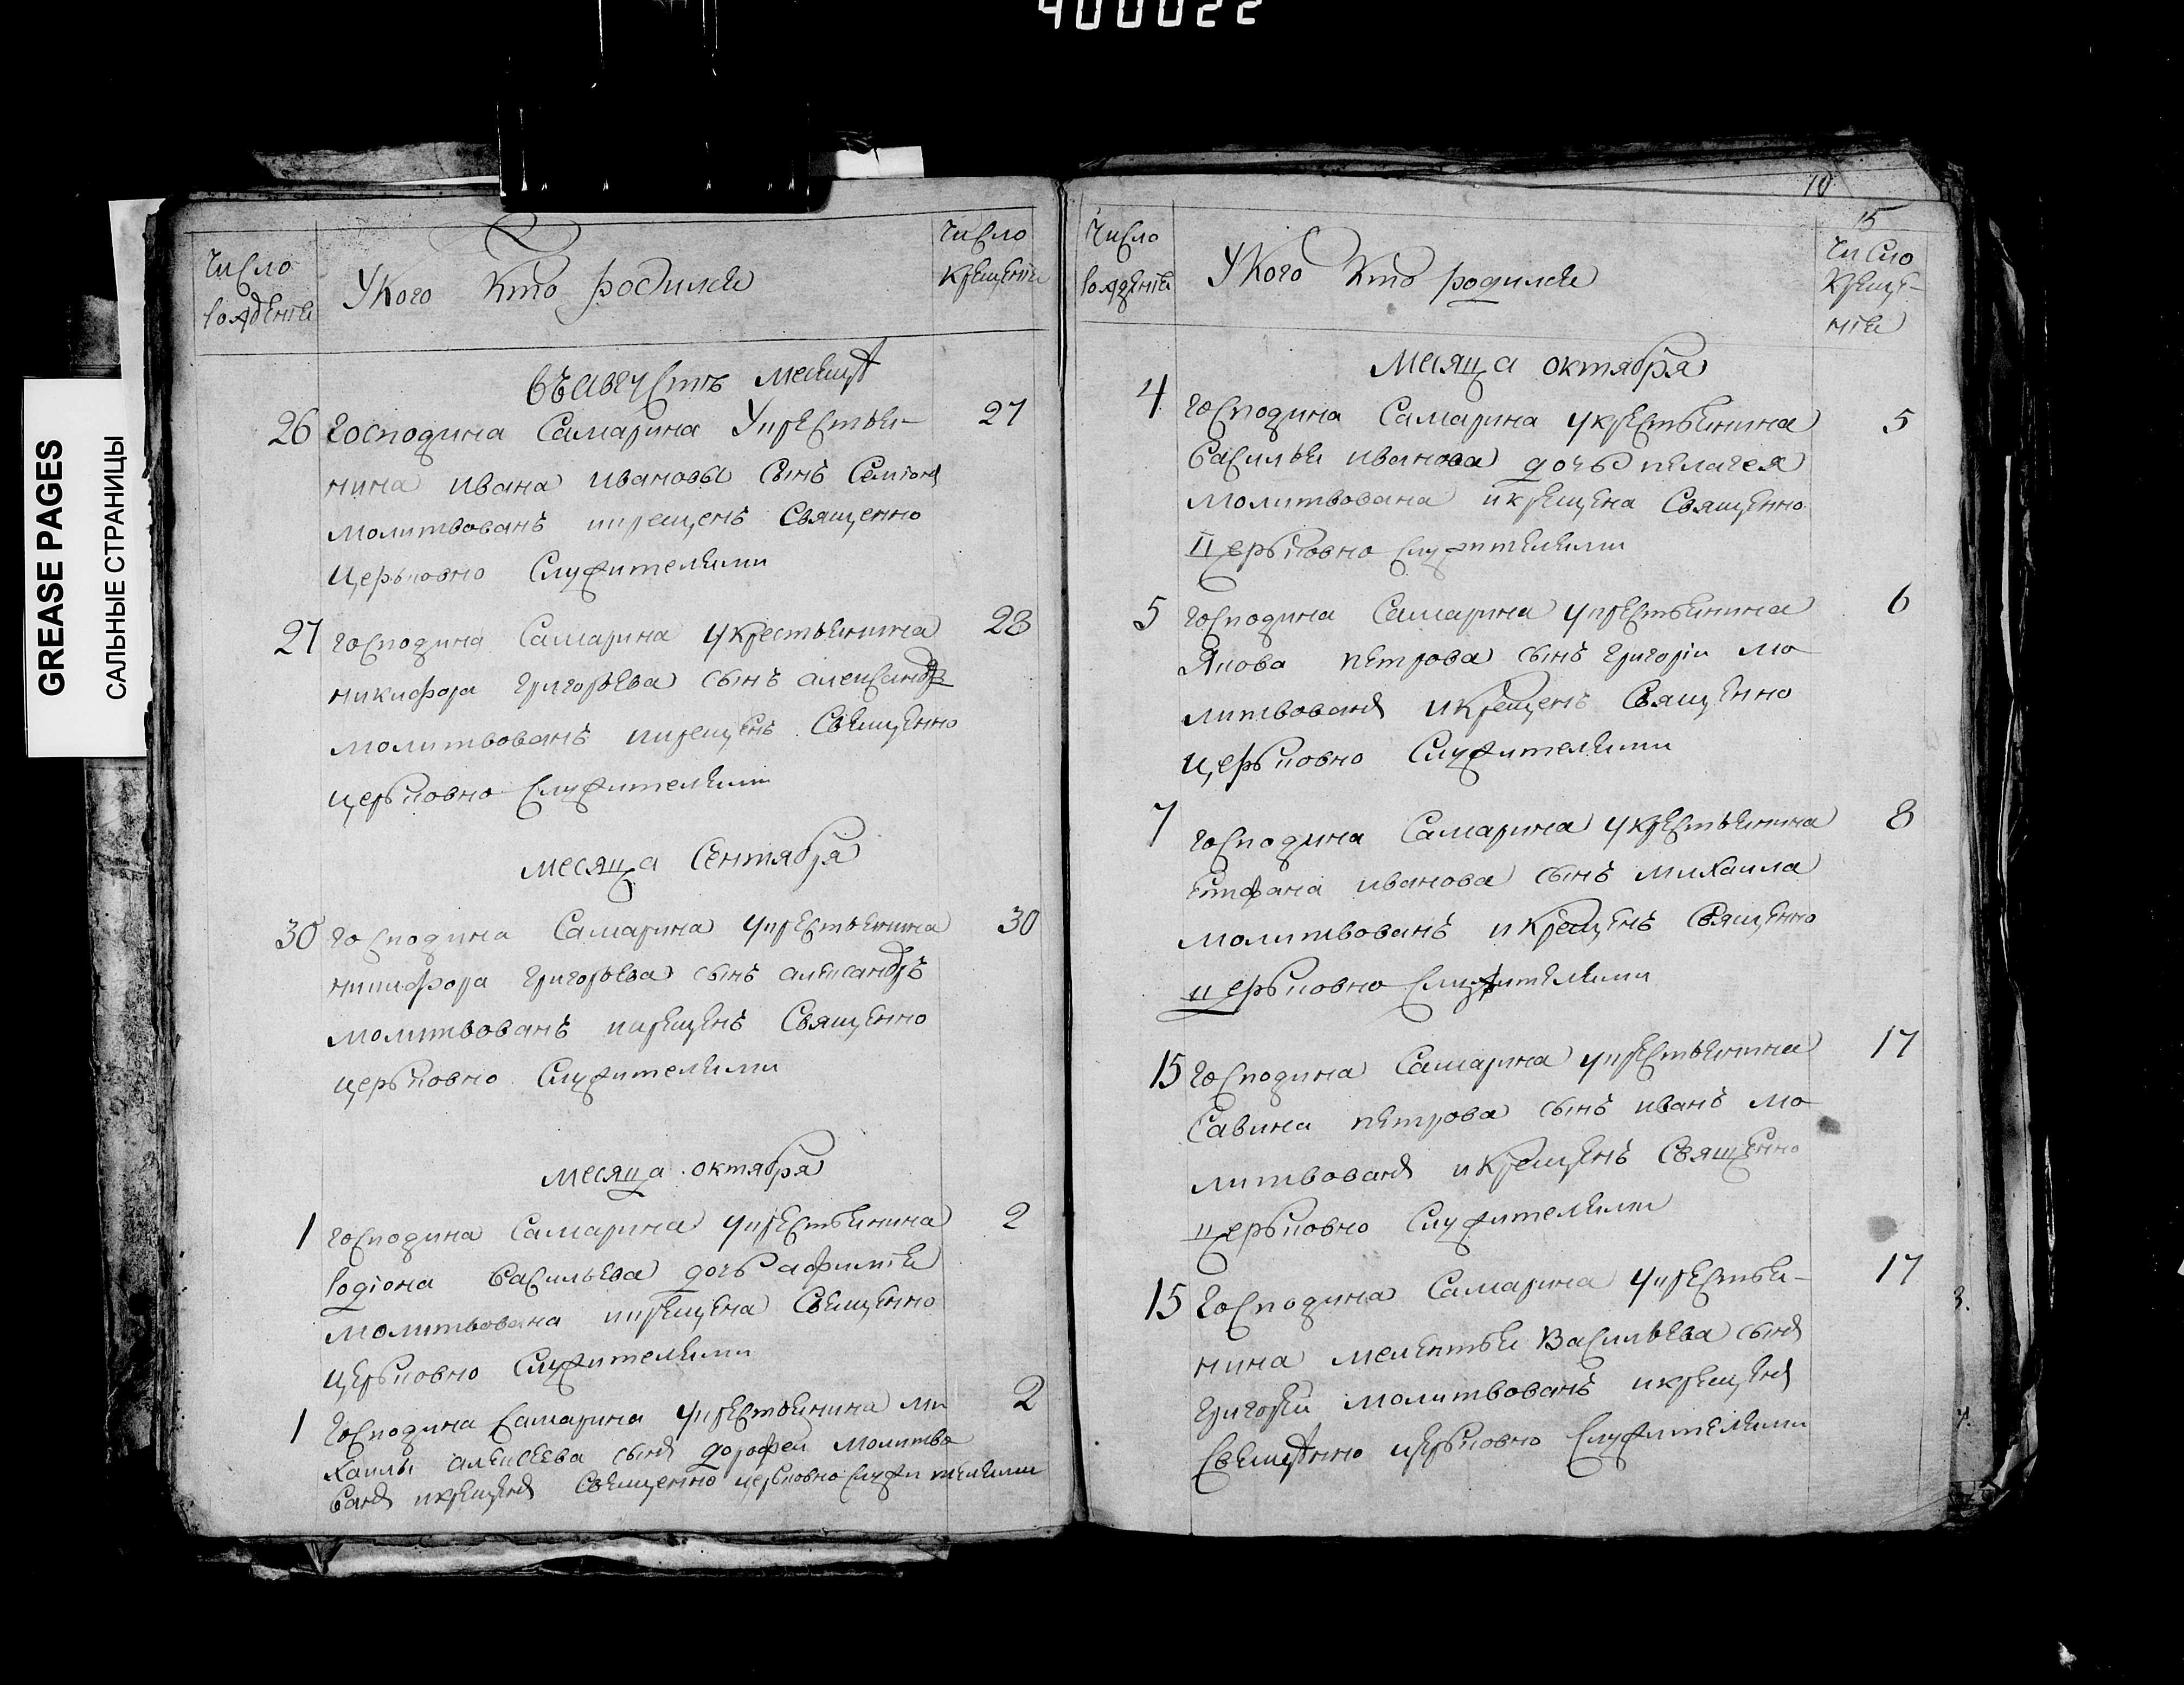 400022
GREASE PAGES
САЛЬНЫЕ СТРАНИЦЫ
Число рождения
У Кого Кто родился
Число крещения
въ августъ месяца
26 господина Самарина Укрестья- 27
нина Ивана Иванова сынъ
молитвованъ икрещенъ Священно
церьковно Служителями
27 господина Самарина укрестьянина 28
никифора григорьева сынъ александръ
молитвованъ икрещенъ Свещенно
церьковно Служителями
месяца Сентября
30 господина Самарина укрестьянина 30
никифора григорьева сынъ александръ
молитвованъ икрещенъ Священно
церьковно Служителями
месяца октября
1 господина Самарина укрестьянина 2
родiона васильева дочь афимiя
молитвована икрещена Свещенно
церьковно Служителями
1 господина Самарина укрестьянина ми 2
хаилы алексеева сынъ дорофеи молитво
ванъ икрещенъ Свещенно церьковно служителями
10
15
Число рождения
У Кого Кто родился
Число Креще-
нiя
Месяца октября
4 господина Самарина укрестьянина 5
василья иванова дочь пелагея
молитвована икрещена Священно
церьковно служителями
5 господина Самарина укрестьянина 6
Якова петрова сынъ григорiи мо
литвованъ икрещенъ Священно
церьковно Служителями
7 господина Самарина укрестьянина 8
епифана иванова сынъ михаила
молитвованъ икрещенъ Священно
церьковно Служителями
15 господина Самарина укрестьянина 17
Савина петрова сынъ иванъ мо
литвованъ икрещенъ Священно
церьковно Служителями
15 господина Самарина укрестья- 17
нина мелентья Васильева сынъ
григорей молитвованъ икрещенъ
Священно церьковно Служителями